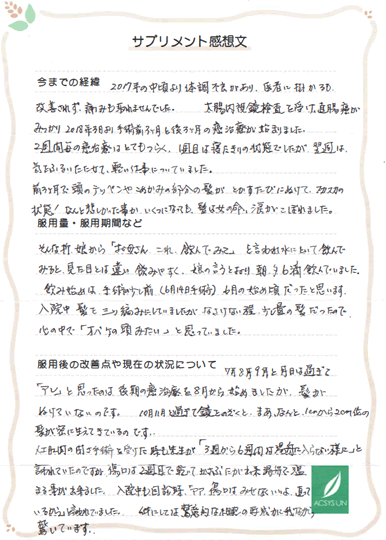 サプリメント感想文
今までの経緯 2017年の中頃より体調不良があり、医者に掛かるも
改善されず、痛みも取れませんでした。 大腸内視鏡検査を受け、直腸癌が
みつかり2018年3月より手術前3ヶ月と後3ヶ月の癌治療が始まりました。
2週間毎の癌治療はとてもつらく、1週目は寝たきりの状態でしたが、翌週は、
気をふるいたたせて、軽い仕事についていました。
前3ヶ月で頭のテッペンやこめかみの部分の髪が、とかすたびにぬけて、
状態! なんと悲しかった事か、いくつになっても、髪は女の命、涙がこぼれました。
服用量・服用期間など
そんな折、娘から「お母さん これ、飲んでみて」と言われ水にといて飲んで
みると、見た目とは違い飲みやすく、娘の言うとおり朝、夕も満飲んでいました。
飲み始めは、手術の少し前(6月19日手術) 6月の始め頃だったと思います。
入院中髪を三つ編みにしていましたが、なさけない程、少量の髪だったので
心の中で「オバケの頭みたい」と思っていました。
服用後の改善点や現在の状況について 7月8月9月と月日は過ぎて
「アレ」と思ったのは後期の癌治療を8月から始めましたが、髪が
ぬけていないのです。 10月11月と過ぎて鏡をのぞくと、まあ、なんと、100から200位の
髪が常に生えてきているのです。
「3週から6週間は湯舟に入らない様に」と
言われていたのですが、傷口は2週目で
まる事が出来ました。 入院中も回診時、「アア、傷口はみせないでいいよ、
驚いています。
ACSYS UN